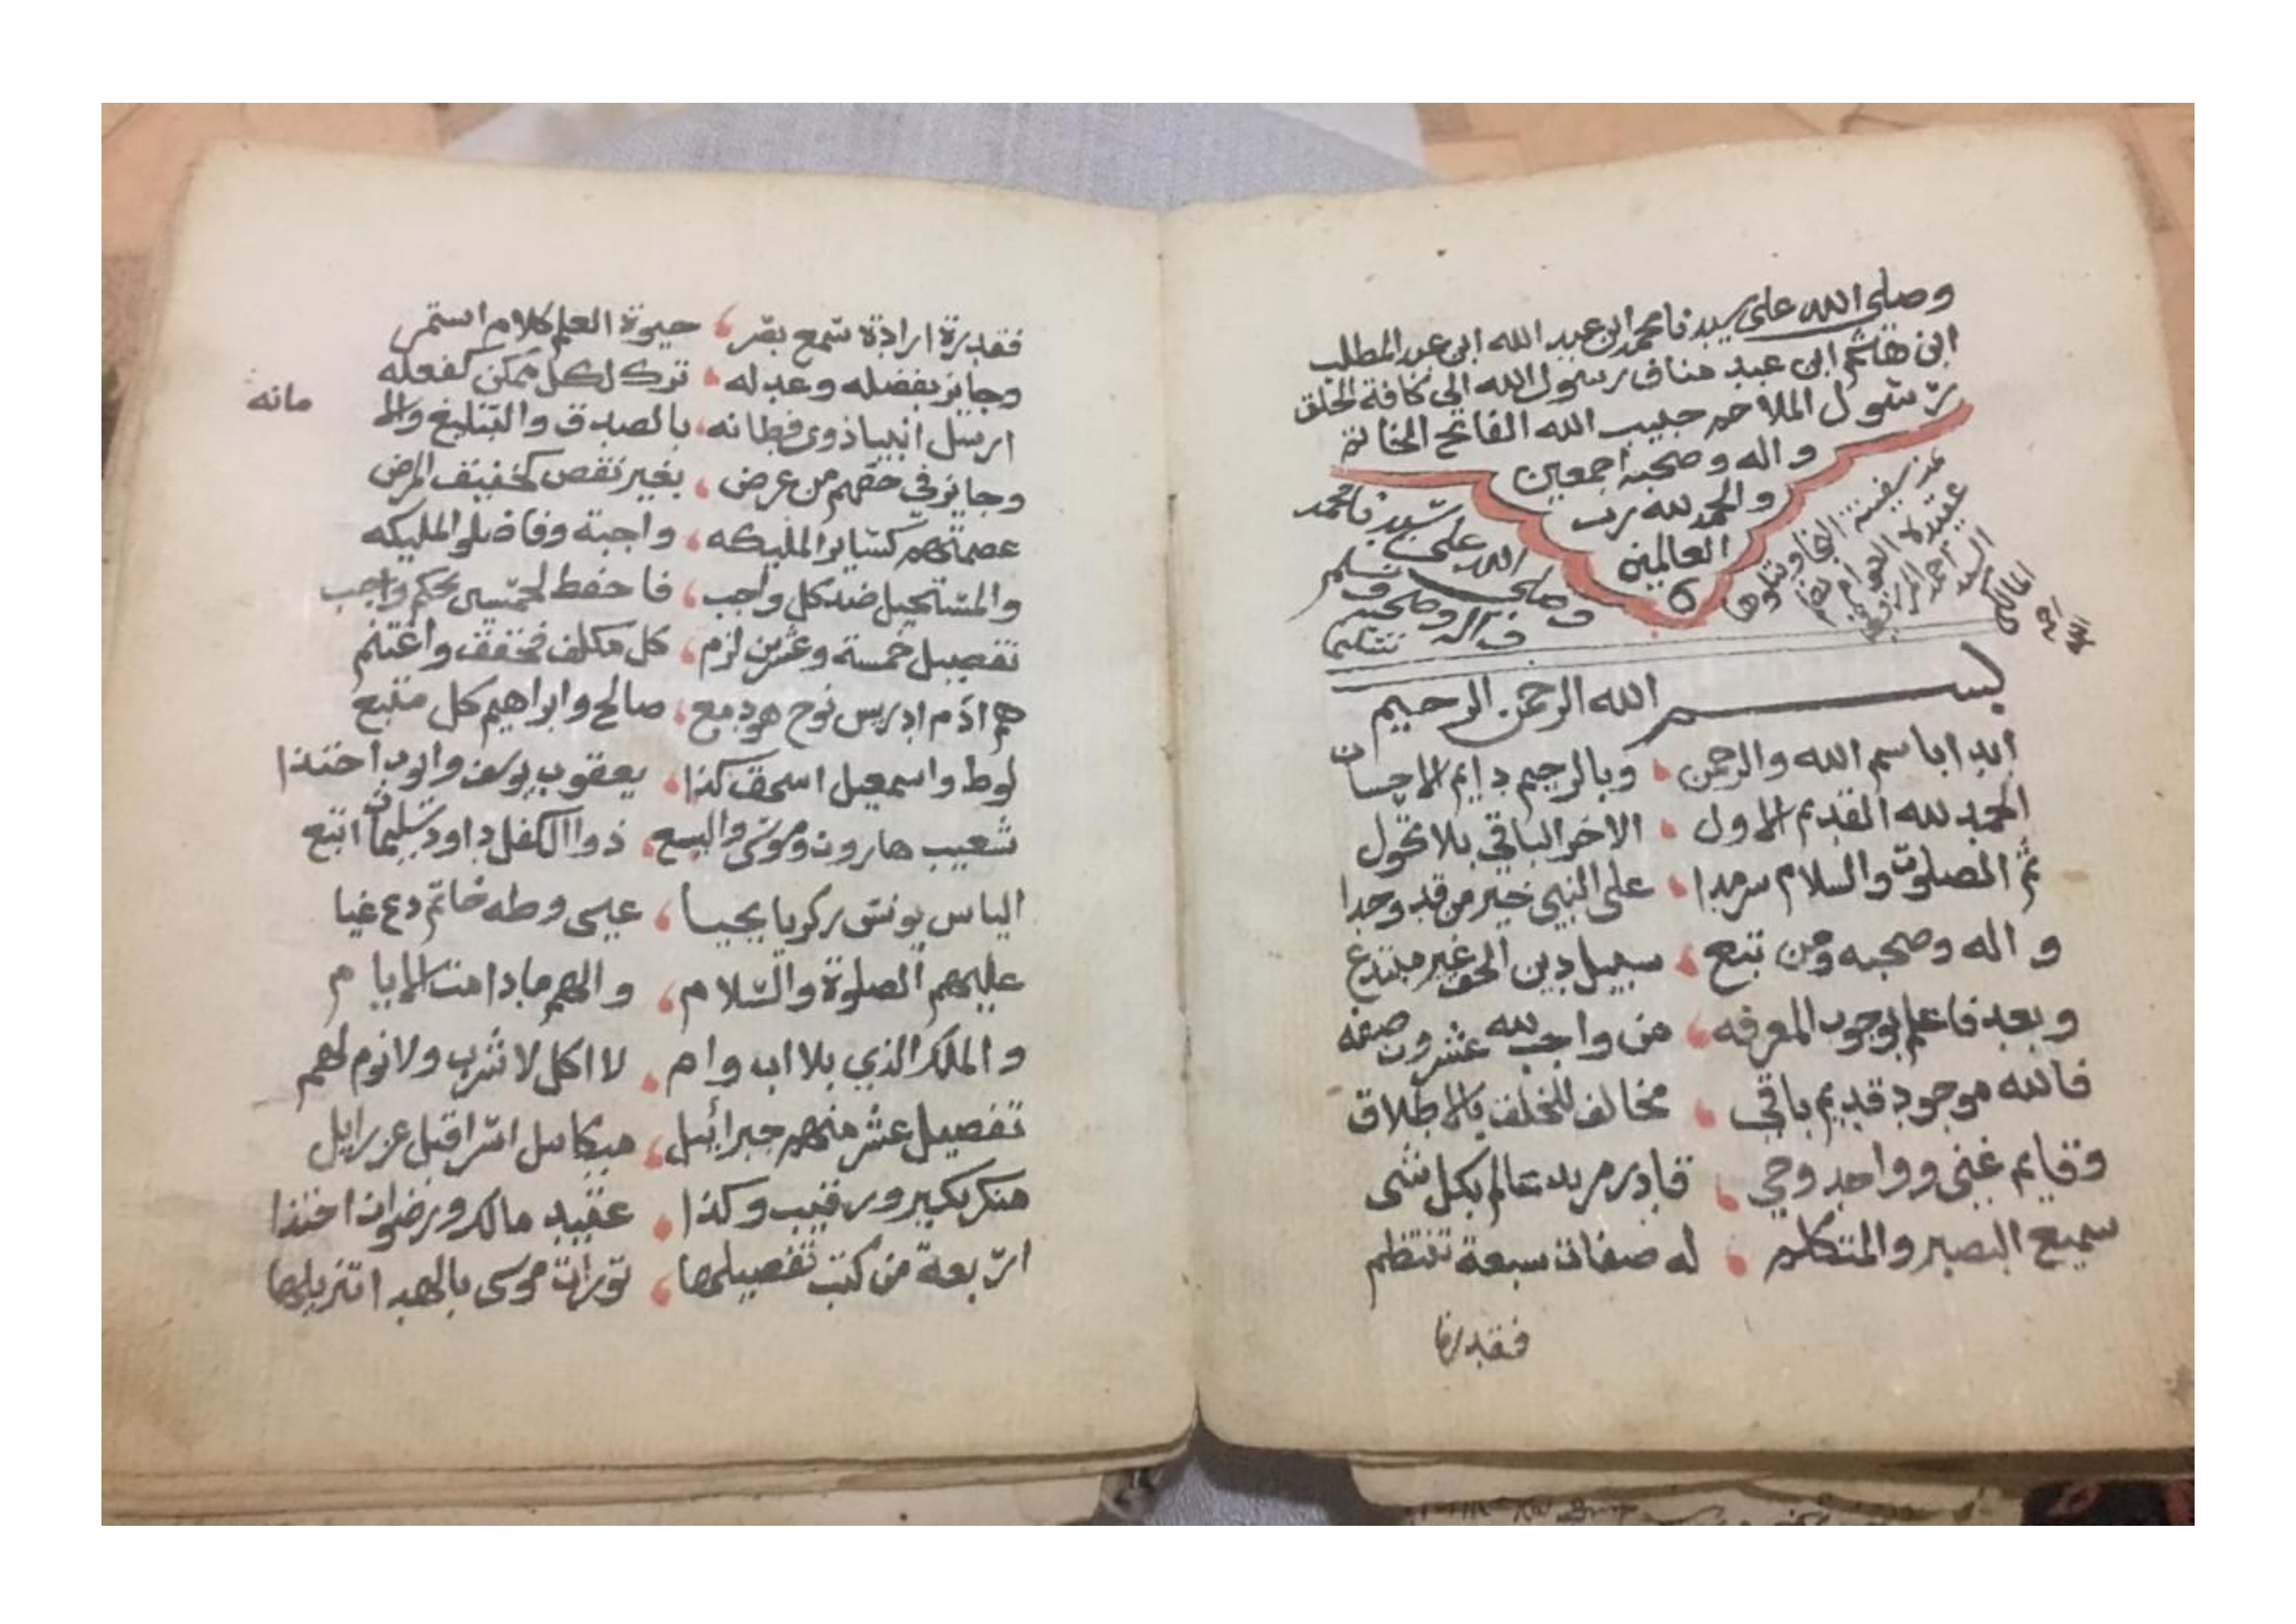 وصلى الله على سيدنا محمد ابن عبد الله ابن عبد المطلب
ابن هاشم ابن عبد مناف رسول الله الى كافة الخلق
رسول الملاحم حبيب الله الفاتح الخاتم
واله وصحبه اجمعين
والحمد لله رب
العالمين
سفينة النجا وتتلوها
عقيدة العوام نظم
السيد احمد المرزوقي
المالكي
وصلى الله على سيدنا محمد
واله وصحبه وسلم
تسليما
بسم الله الرحمن الرحيم
ابدا باسم الله والرحمن وبالرحيم دايم الاحسان
الحمد لله القديم الاول الاخر الباقي بلا تحول
ثم الصلوت والسلام سرمدا على النبي خير من قد وحدا
واله وصحبه ومن تبع سبيل دين الحق غير مبتدع
وبعد فاعلم بوجوب المعرفه من واجب لله عشرون صفه
فالله موجود قديم باقي مخالف للخلق بالاطلاق
وقايم غني وواحد وحي قادر مريد عالم بكل شى
سميع البصير والمتكلم له صفات سبعة تنتظم
فقدرة
فقدرة ارادة سمع بصر حيوة العلم كلام استمر
وجايز بفضله وعدله ترك لكل ممكن كفعله
ارسل انبيا ذوي فطانه بالصدق والتبليغ والا
مانه
وجايز في حقهم من عرض بغير نقص كخفيف المرض
عصمتهم كساير المليكه واجبة وفاضلو المليكه
والمستحيل ضد كل واجب فاحفظ لخمسين بحكم واجب
تفصيل خمسة وعشرين لزم كل مكلف فحقق واغتنم
هم ادم ادريس نوح هود مع صالح وابراهيم كل متبع
لوط واسمعيل اسحق كذا يعقوب يوسف وايوب احتذا
شعيب هارون وموسى واليسع ذوا الكفل داود سليمان اتبع
الياس يونس زكريا يحيا عيسى وطه خاتم دع غيا
عليهم الصلوة والسلام والهم ما دامت الايام
والملك الذي بلا اب وام لا اكل لا شرب ولا نوم لهم
تفصيل عشر منهم جبرائيل ميكائل اسرافيل عزرايل
منكر نكير ورقيب وكذا عقيد مالك ورضوان احتذا
اربعة من كتب تفصيلها تورات موسى بالهدا تنزيلها